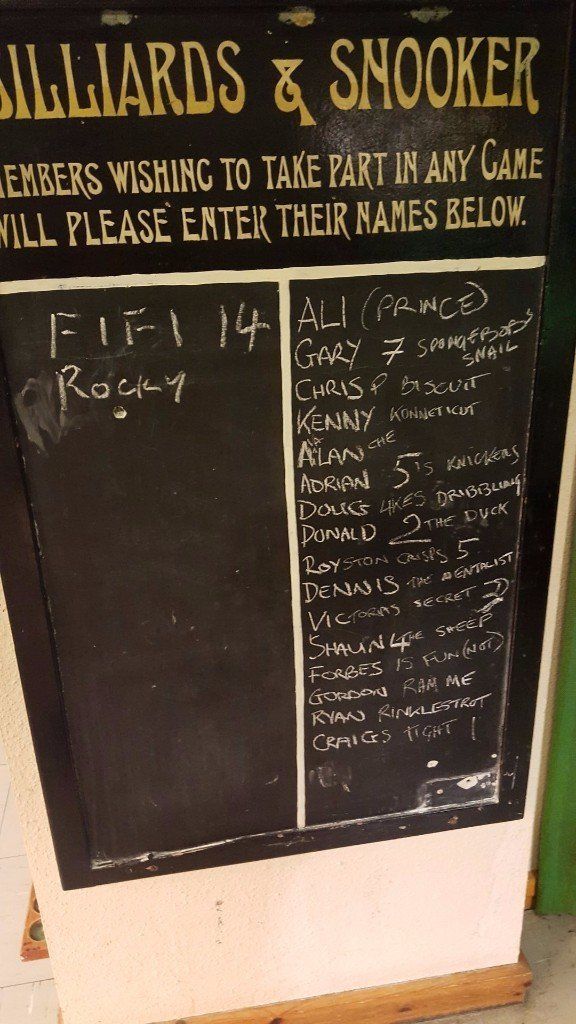 BILLIARDS & SNOOKER
MEMBERS WISHING TO TAKE PART IN ANY GAME
WILL PLEASE ENTER THEIR NAMES BELOW.
FIFI 14
ROCKY
ALI (PRINCE)
GARY 7 SPONGEBOB'S SNAIL
CHRIS P BISCUIT
KENNY KONNETICUT
ALAN CHE
ADRIAN 5'S KNICKERS
DOUG LIKES DRIBBLING
DONALD 2 THE DUCK
ROYSTON CRISPS 5
DENNIS THE MENTALIST
VICTORIAS SECRET
SHAUN 4 THE SHEEP
FORBES IS FUN (NOT)
GORDON RAM ME
RYAN RINKLESTROT
CRAIGS TIGHT 1